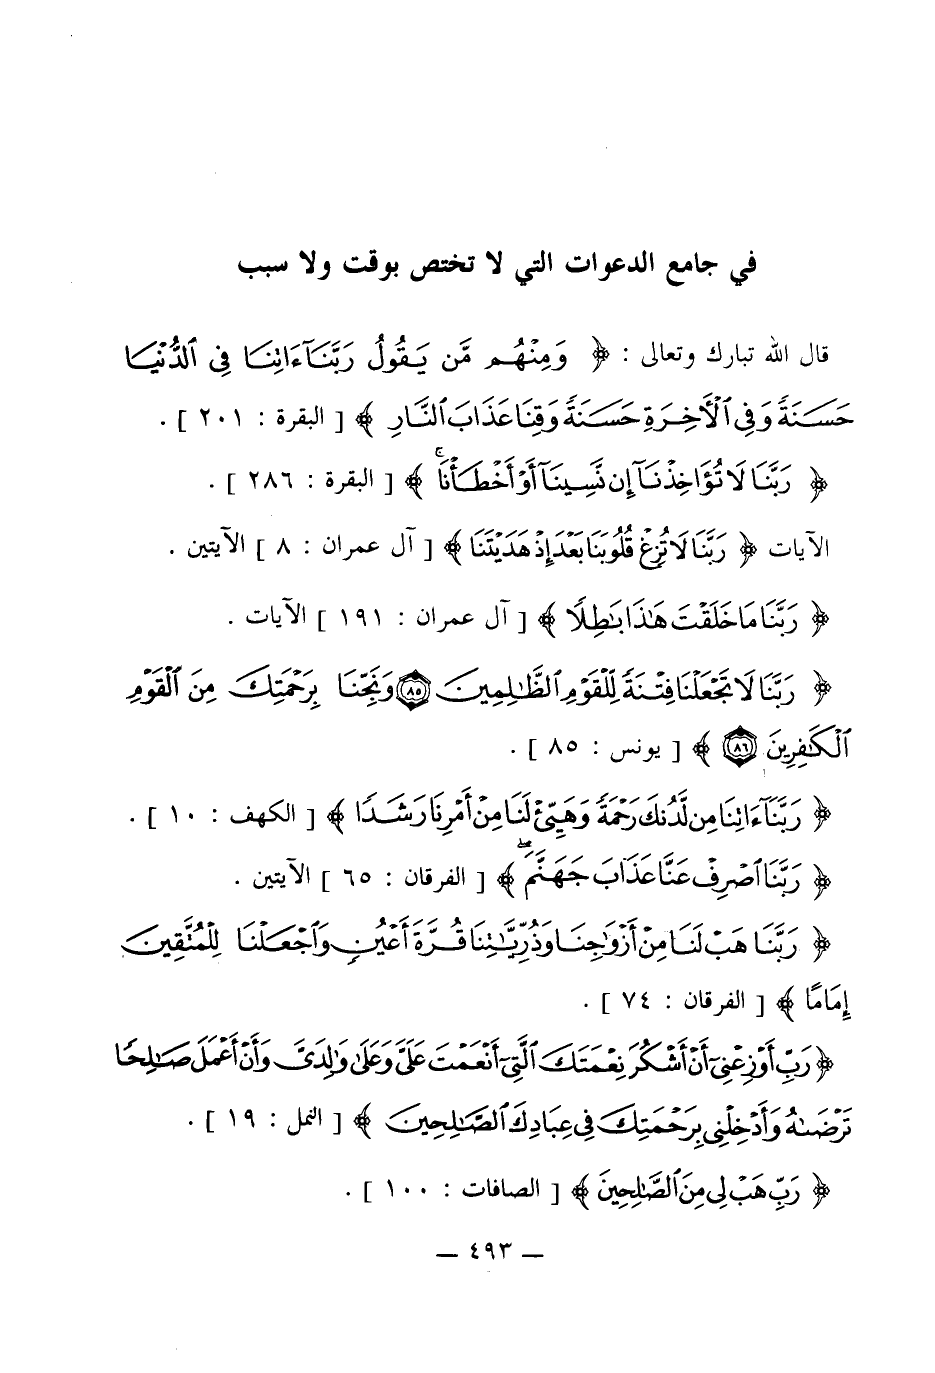 في جامع الدعوات التي لا تختص بوقت ولا سبب
قال الله تبارك وتعالى : ﴿ وَمِنْهُم مَّن يَقُولُ رَبَّنَآ ءَاتِنَا فِى ٱلدُّنْيَا
حَسَنَةً وَفِى ٱلْأَخِرَةِ حَسَنَةً وَقِنَا عَذَابَ ٱلنَّارِ ﴾ [ البقرة : ٢٠١ ] .
﴿ رَبَّنَا لَا تُؤَاخِذْنَآ إِن نَّسِينَآ أَوْ أَخْطَأْنَا ۚ ﴾ [ البقرة : ٢٨٦ ] .
الآيات ﴿ رَبَّنَا لَا تُزِغْ قُلُوبَنَا بَعْدَ إِذْ هَدَيْتَنَا ﴾ [ آل عمران : ٨ ] الآيتين .
﴿ رَبَّنَا مَا خَلَقْتَ هَٰذَا بَٰطِلًا ﴾ [ آل عمران : ١٩١ ] الآيات .
﴿ رَبَّنَا لَا تَجْعَلْنَا فِتْنَةً لِّلْقَوْمِ ٱلظَّٰلِمِينَ ٨٥ وَنَجِّنَا بِرَحْمَتِكَ مِنَ ٱلْقَوْمِ
ٱلْكَٰفِرِينَ ٨٦ ﴾ [ يونس : ٨٥ ] .
﴿ رَبَّنَآ ءَاتِنَا مِن لَّدُنكَ رَحْمَةً وَهَيِّئْ لَنَا مِنْ أَمْرِنَا رَشَدًا ﴾ [ الكهف : ١٠ ] .
﴿ رَبَّنَا ٱصْرِفْ عَنَّا عَذَابَ جَهَنَّمَ ۖ ﴾ [ الفرقان : ٦٥ ] الآيتين .
﴿ رَبَّنَا هَبْ لَنَا مِنْ أَزْوَٰجِنَا وَذُرِّيَّٰتِنَا قُرَّةَ أَعْيُنٍ وَٱجْعَلْنَا لِلْمُتَّقِينَ
إِمَامًا ﴾ [ الفرقان : ٧٤ ] .
﴿ رَبِّ أَوْزِعْنِىٓ أَنْ أَشْكُرَ نِعْمَتَكَ ٱلَّتِىٓ أَنْعَمْتَ عَلَىَّ وَعَلَىٰ وَٰلِدَىَّ وَأَنْ أَعْمَلَ صَٰلِحًا
تَرْضَىٰهُ وَأَدْخِلْنِى بِرَحْمَتِكَ فِى عِبَادِكَ ٱلصَّٰلِحِينَ ﴾ [ النمل : ١٩ ] .
﴿ رَبِّ هَبْ لِى مِنَ ٱلصَّٰلِحِينَ ﴾ [ الصافات : ١٠٠ ] .
— ٤٩٣ —